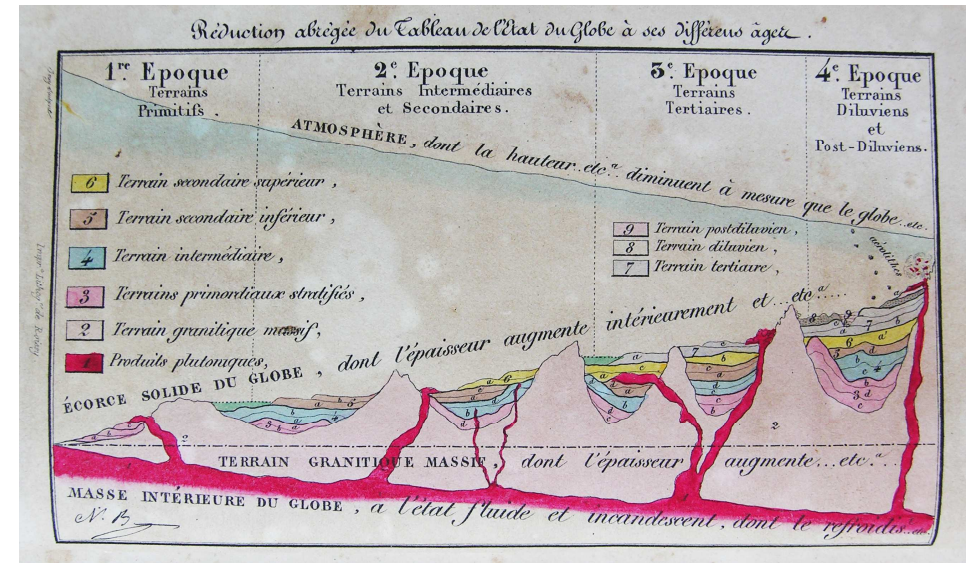 Réduction abrégée du Tableau de l'État du Globe à ses différens âges.
1re Epoque
Terrains
Primitifs.
2e. Epoque
Terrains Intermédiaires
et Secondaires.
3e. Epoque
Terrains
Tertiaires.
4e. Epoque
Terrains
Diluviens
et
Post-Diluviens.
ATMOSPHÈRE, dont la hauteur..etc.a diminuent à mesure que le globe..etc.
6 Terrain secondaire supérieur,
5 Terrain secondaire inférieur,
4 Terrain intermédiaire,
3 Terrains primordiaux stratifiés,
2 Terrain granitique massif,
1 Produits plutoniques,
9 Terrain postdiluvien,
8 Terrain diluvien,
7 Terrain tertiaire,
aérolithes
ÉCORCE SOLIDE DU GLOBE, dont l'épaisseur augmente intérieurement et...etc.a.....
TERRAIN GRANITIQUE MASSIF, dont l'épaisseur augmente...etc.a...
MASSE INTÉRIEURE DU GLOBE, a l'état fluide et incandescent, dont le refroidis...etc.
N. B